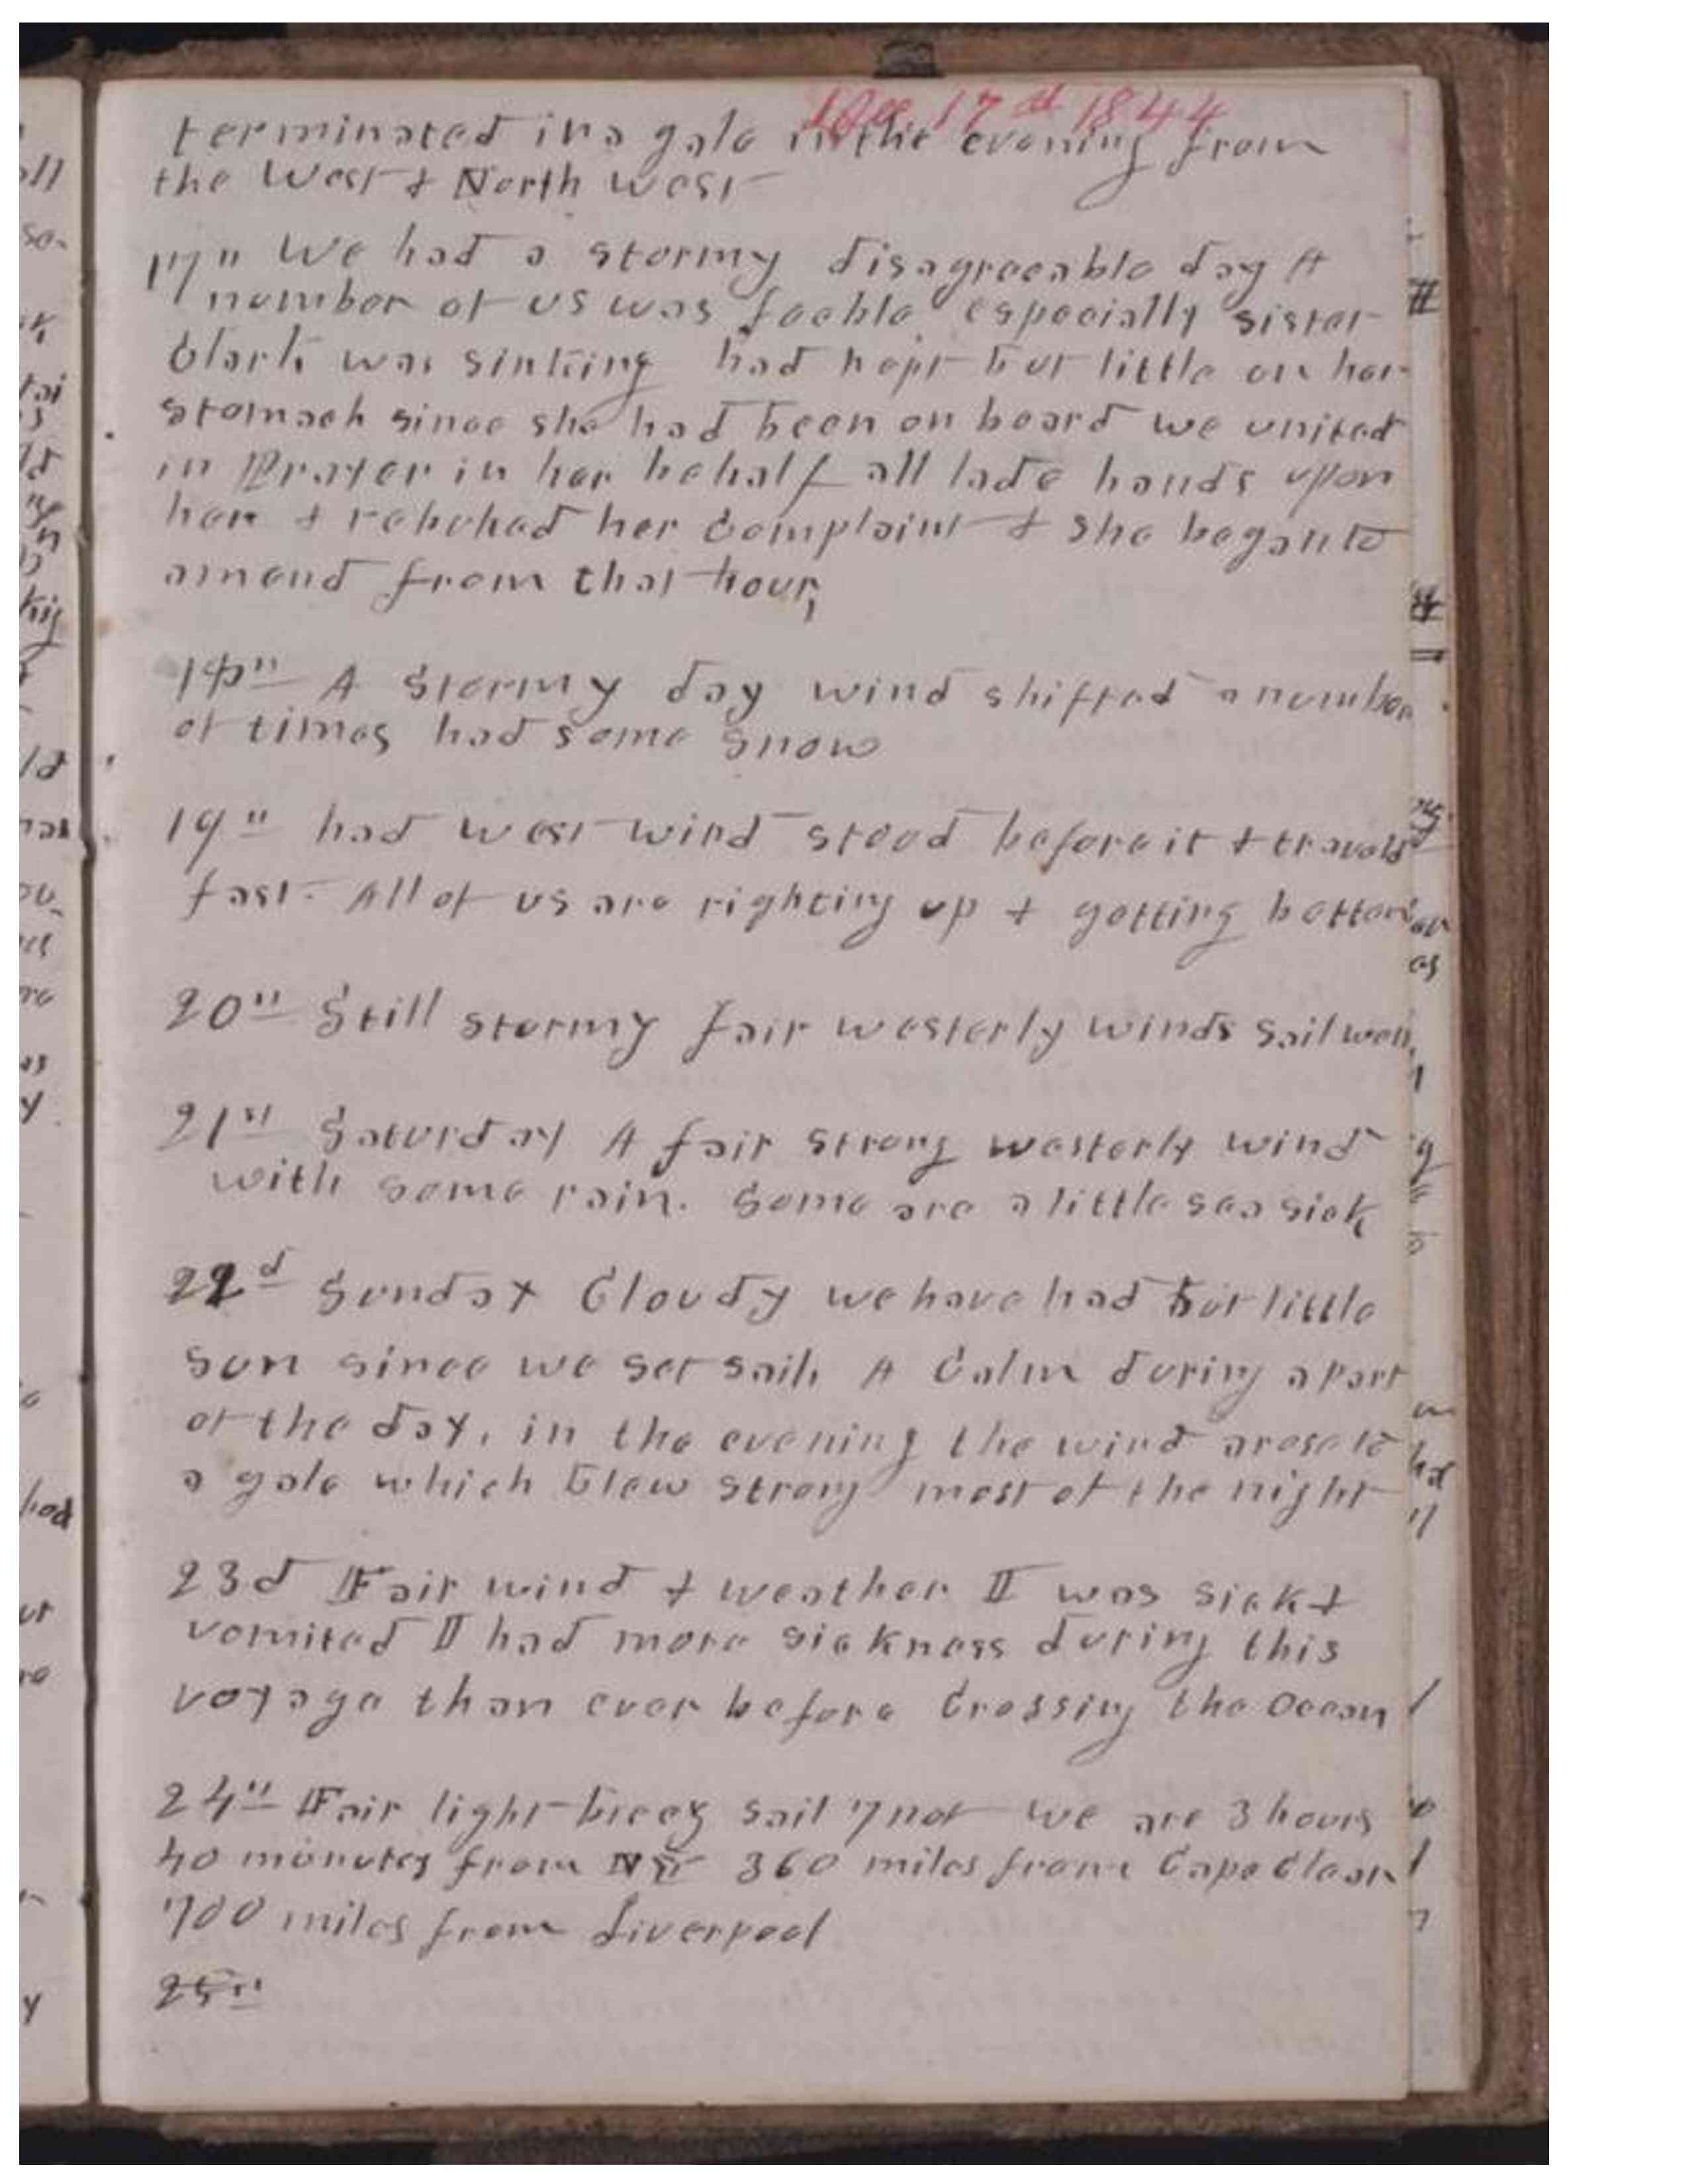 Dec 17th 1844
terminated in a gale in the evening from
the West & North west
17" We had a stormy disagreeable day A
number of us was feeble especially sister
Clark was sinking had kept but little on her
stomach since she had been on board we united
in Prayer in her behalf all lade hands upon
her & rebuked her complaint & she began to
amend from that hour,
18" A Stormy day wind shifted a number
of times had some Snow
19" had west wind stood before it & traveld
fast. All of us are righting up & getting better
20" Still stormy fair westerly winds sail well
21st Saturday A fair Strong westerly wind
with some rain. Some are a little sea sick
22d Sunday Cloudy we have had but little
sun since we set sail, A Calm during a part
of the day, in the evening the wind arose to
a gale which blew strong most of the night
23d Fair wind & weather I was sick &
vomited I had more sickness during this
voyage than ever before Crossing the Ocean
24" Fair light breez sail 7 not we are 3 hours
40 minutes from NY 360 miles from Cape Clear
700 miles from Liverpool
25"